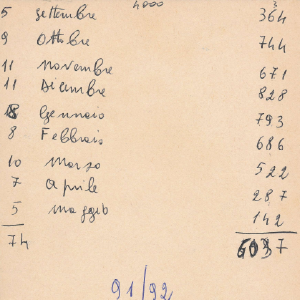 4000
3
5 settembre 364
9 ottobre 744
11 novembre 671
11 Dicembre 828
8 Gennaio 793
8 Febbraio 686
10 marzo 522
7 aprile 287
5 maggio 142
74 5037
91/92